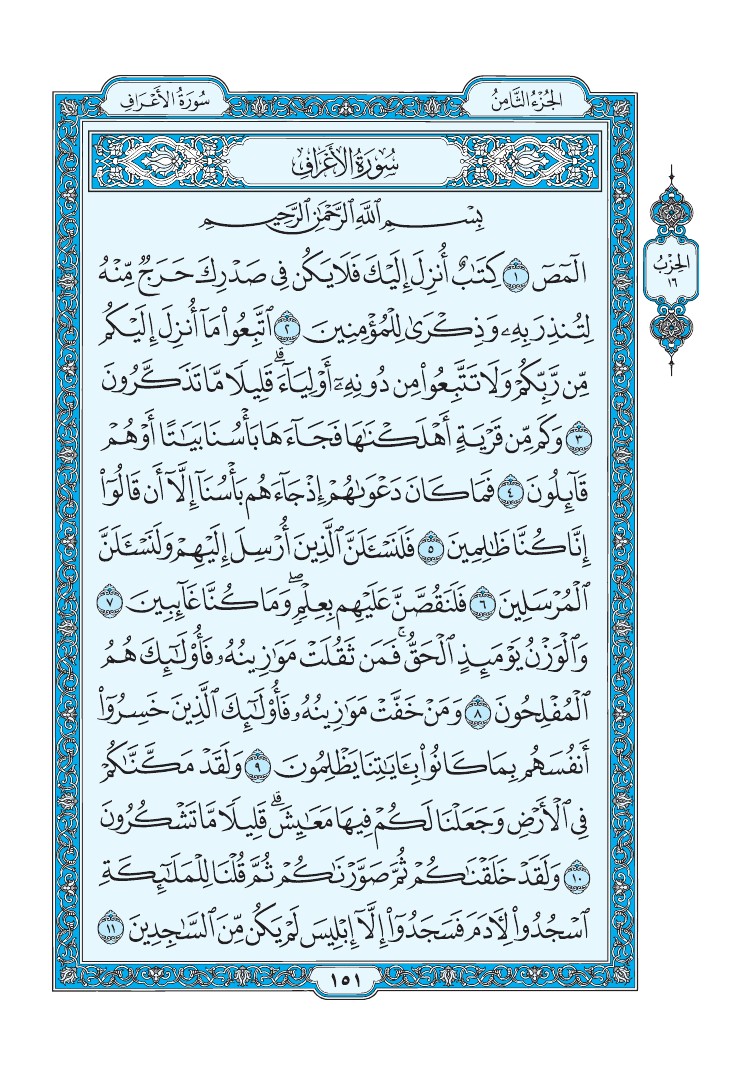 الجُزْءُ الثَّامِنُ
سُورَةُ الأَعْرَافِ
سُورَةُ الأَعْرَافِ
الحِزْبُ
١٦
بِسْمِ ٱللَّهِ ٱلرَّحْمَٰنِ ٱلرَّحِيمِ
الٓمٓصٓ ١ كِتَٰبٌ أُنزِلَ إِلَيْكَ فَلَا يَكُن فِى صَدْرِكَ حَرَجٌ مِّنْهُ
لِتُنذِرَ بِهِۦ وَذِكْرَىٰ لِلْمُؤْمِنِينَ ٢ ٱتَّبِعُوا۟ مَآ أُنزِلَ إِلَيْكُم
مِّن رَّبِّكُمْ وَلَا تَتَّبِعُوا۟ مِن دُونِهِۦٓ أَوْلِيَآءَ ۗ قَلِيلًا مَّا تَذَكَّرُونَ
٣ وَكَم مِّن قَرْيَةٍ أَهْلَكْنَٰهَا فَجَآءَهَا بَأْسُنَا بَيَٰتًا أَوْ هُمْ
قَآئِلُونَ ٤ فَمَا كَانَ دَعْوَىٰهُمْ إِذْ جَآءَهُم بَأْسُنَآ إِلَّآ أَن قَالُوٓا۟
إِنَّا كُنَّا ظَٰلِمِينَ ٥ فَلَنَسْـَٔلَنَّ ٱلَّذِينَ أُرْسِلَ إِلَيْهِمْ وَلَنَسْـَٔلَنَّ
ٱلْمُرْسَلِينَ ٦ فَلَنَقُصَّنَّ عَلَيْهِم بِعِلْمٍ ۖ وَمَا كُنَّا غَآئِبِينَ ٧
وَٱلْوَزْنُ يَوْمَئِذٍ ٱلْحَقُّ ۚ فَمَن ثَقُلَتْ مَوَٰزِينُهُۥ فَأُو۟لَٰٓئِكَ هُمُ
ٱلْمُفْلِحُونَ ٨ وَمَنْ خَفَّتْ مَوَٰزِينُهُۥ فَأُو۟لَٰٓئِكَ ٱلَّذِينَ خَسِرُوٓا۟
أَنفُسَهُم بِمَا كَانُوا۟ بِـَٔايَٰتِنَا يَظْلِمُونَ ٩ وَلَقَدْ مَكَّنَّٰكُمْ
فِى ٱلْأَرْضِ وَجَعَلْنَا لَكُمْ فِيهَا مَعَٰيِشَ ۗ قَلِيلًا مَّا تَشْكُرُونَ
١٠ وَلَقَدْ خَلَقْنَٰكُمْ ثُمَّ صَوَّرْنَٰكُمْ ثُمَّ قُلْنَا لِلْمَلَٰٓئِكَةِ
ٱسْجُدُوا۟ لِءَادَمَ فَسَجَدُوٓا۟ إِلَّآ إِبْلِيسَ لَمْ يَكُن مِّنَ ٱلسَّٰجِدِينَ ١١
١٥١